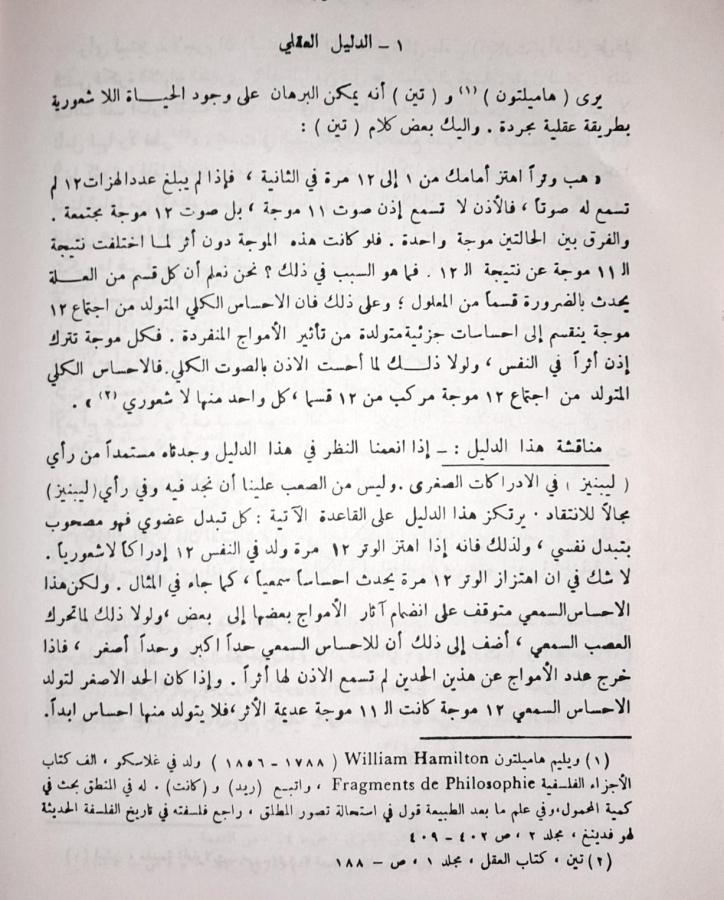 ١ - الدليل العقلي
يرى ( هاميلتون ) (١) و ( تين ) أنه يمكن البرهان على وجود الحيـاة اللا شعورية
بطريقة عقلية مجردة . واليك بعض كلام ( تين ) :
« هب وتراً اهتز أمامك من ١ إلى ١٢ مرة في الثانية ، فإذا لم يبلغ عدد الهزات ١٢ لم
تسمع له صوتاً ، فالأذن لا تسمع إذن صوت ١١ موجة ، بل صوت ١٢ موجة مجتمعة .
والفرق بين الحالتين موجة واحدة . فلو كانت هذه الموجة دون أثر لمـا اختلفت نتيجة
الـ ١١ موجة عن نتيجة الـ ١٢ . فما هو السبب في ذلك ؟ نحن نعلم أن كل قسم من العـلة
يحدث بالضرورة قسماً من المعلول ؛ وعلى ذلك فان الاحساس الكلي المتولد من اجتماع ١٢
موجة ينقسم إلى احساسات جزئية متولدة من تأثير الأمواج المنفردة . فكل موجة تترك
إذن أثراً في النفس ، ولولا ذلـــك لما أحست الاذن بالصوت الكلي. فالاحساس الكلي
المتولد من اجتماع ١٢ موجة مركب من ١٢ قسما ، كل واحد منها لا شعوري (٢) » .
مناقشة هذا الدليل : ـ إذا انعمنا النظر في هذا الدليل وجدناه مستمداً من رأي
( ليبنيز ) في الادراكات الصغرى . وليس من الصعب علينا أن نجد فيه وفي رأي ( ليبنيز )
مجالاً للانتقاد . يرتكز هذا الدليل على القاعدة الآتية : كل تبدل عضوي فهو مصحوب
بتبدل نفسي ، ولذلك فانه إذا اهتز الوتر ١٢ مرة ولد في النفس ١٢ إدراكاً لاشعورياً .
لا شك في ان اهتزاز الوتر ١٢ مرة يحدث احساساً سمعياً ، كما جاء في المثال . ولكن هذا
الاحساس السمعي متوقف على انضمام آثار الأمواج بعضها إلى بعض ، ولولا ذلك لما تحرك
العصب السمعي ، أضف إلى ذلك أن للاحساس السمعي حداً اكبر وحداً أصغر ، فاذا
خرج عدد الأمواج عن هذين الحدين لم تسمع الاذن لها أثراً . وإذا كان الحد الاصغر لتولد
الاحساس السمعي ١٢ موجة كانت الـ ١١ موجة عديمة الأثر ، فلا يتولد منها احساس ابداً.
(١) ويليم هاميلتون William Hamilton ( ١٧٨٨ - ١٨٥٦ ) ولد في غلاسكو ، الف كتاب
الأجزاء الفلسفية Fragments de Philosophie ، واتبع (ريد) و (كانت) . له في المنطق بحث في
كمية المحمول، وفي علم ما بعد الطبيعة قول في استحالة تصور المطلق ، راجع فلسفته في تاريخ الفلسفة الحديثة
لهوفدينغ ، مجلد ٢ ، ص ٤٠٢ - ٤٠٩
(٢) تين ، كتاب العقل ، مجلد ١ ، ص - ١٨٨